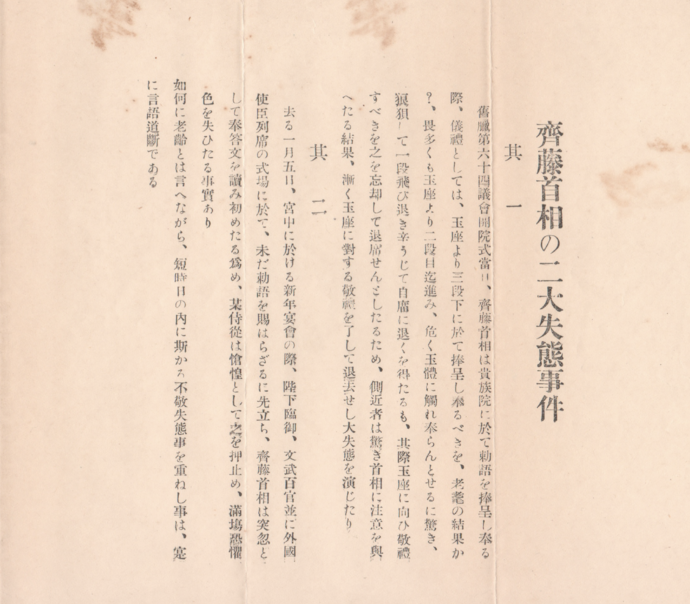 齊藤首相の二大失態事件
其一
舊臘第六十四議會開院式當日、齊藤首相は貴族院に於て勅語を捧呈し奉る
際、儀禮としては、玉座より三段下に於て捧呈し奉るべきを、老耄の結果か
?、畏多くも玉座より二段目迄進み、危く玉體に觸れ奉らんとせるに驚き、
狼狽して一段飛び退き辛うじて自席に退くを得たるも、其際玉座に向ひ敬禮
すべきを之を忘却して退席せんとしたるため、側近者は驚き首相に注意を與
へたる結果、漸く玉座に對する敬禮を了して退去せし大失態を演じたり
其二
去る一月五日、宮中に於ける新年宴會の際、陛下臨御、文武百官並に外國
使臣列席の式場に於て、未だ勅語を賜はらざるに先立ち、齊藤首相は突忽と
して奉答文を讀み初めたる爲め、某侍從は愴惶として之を押止め、滿場恐懼
色を失ひたる事實あり
如何に老齡とは言へながら、短時日の內に斯かる不敬失態事を重ねし事は、寔
に言語道斷である